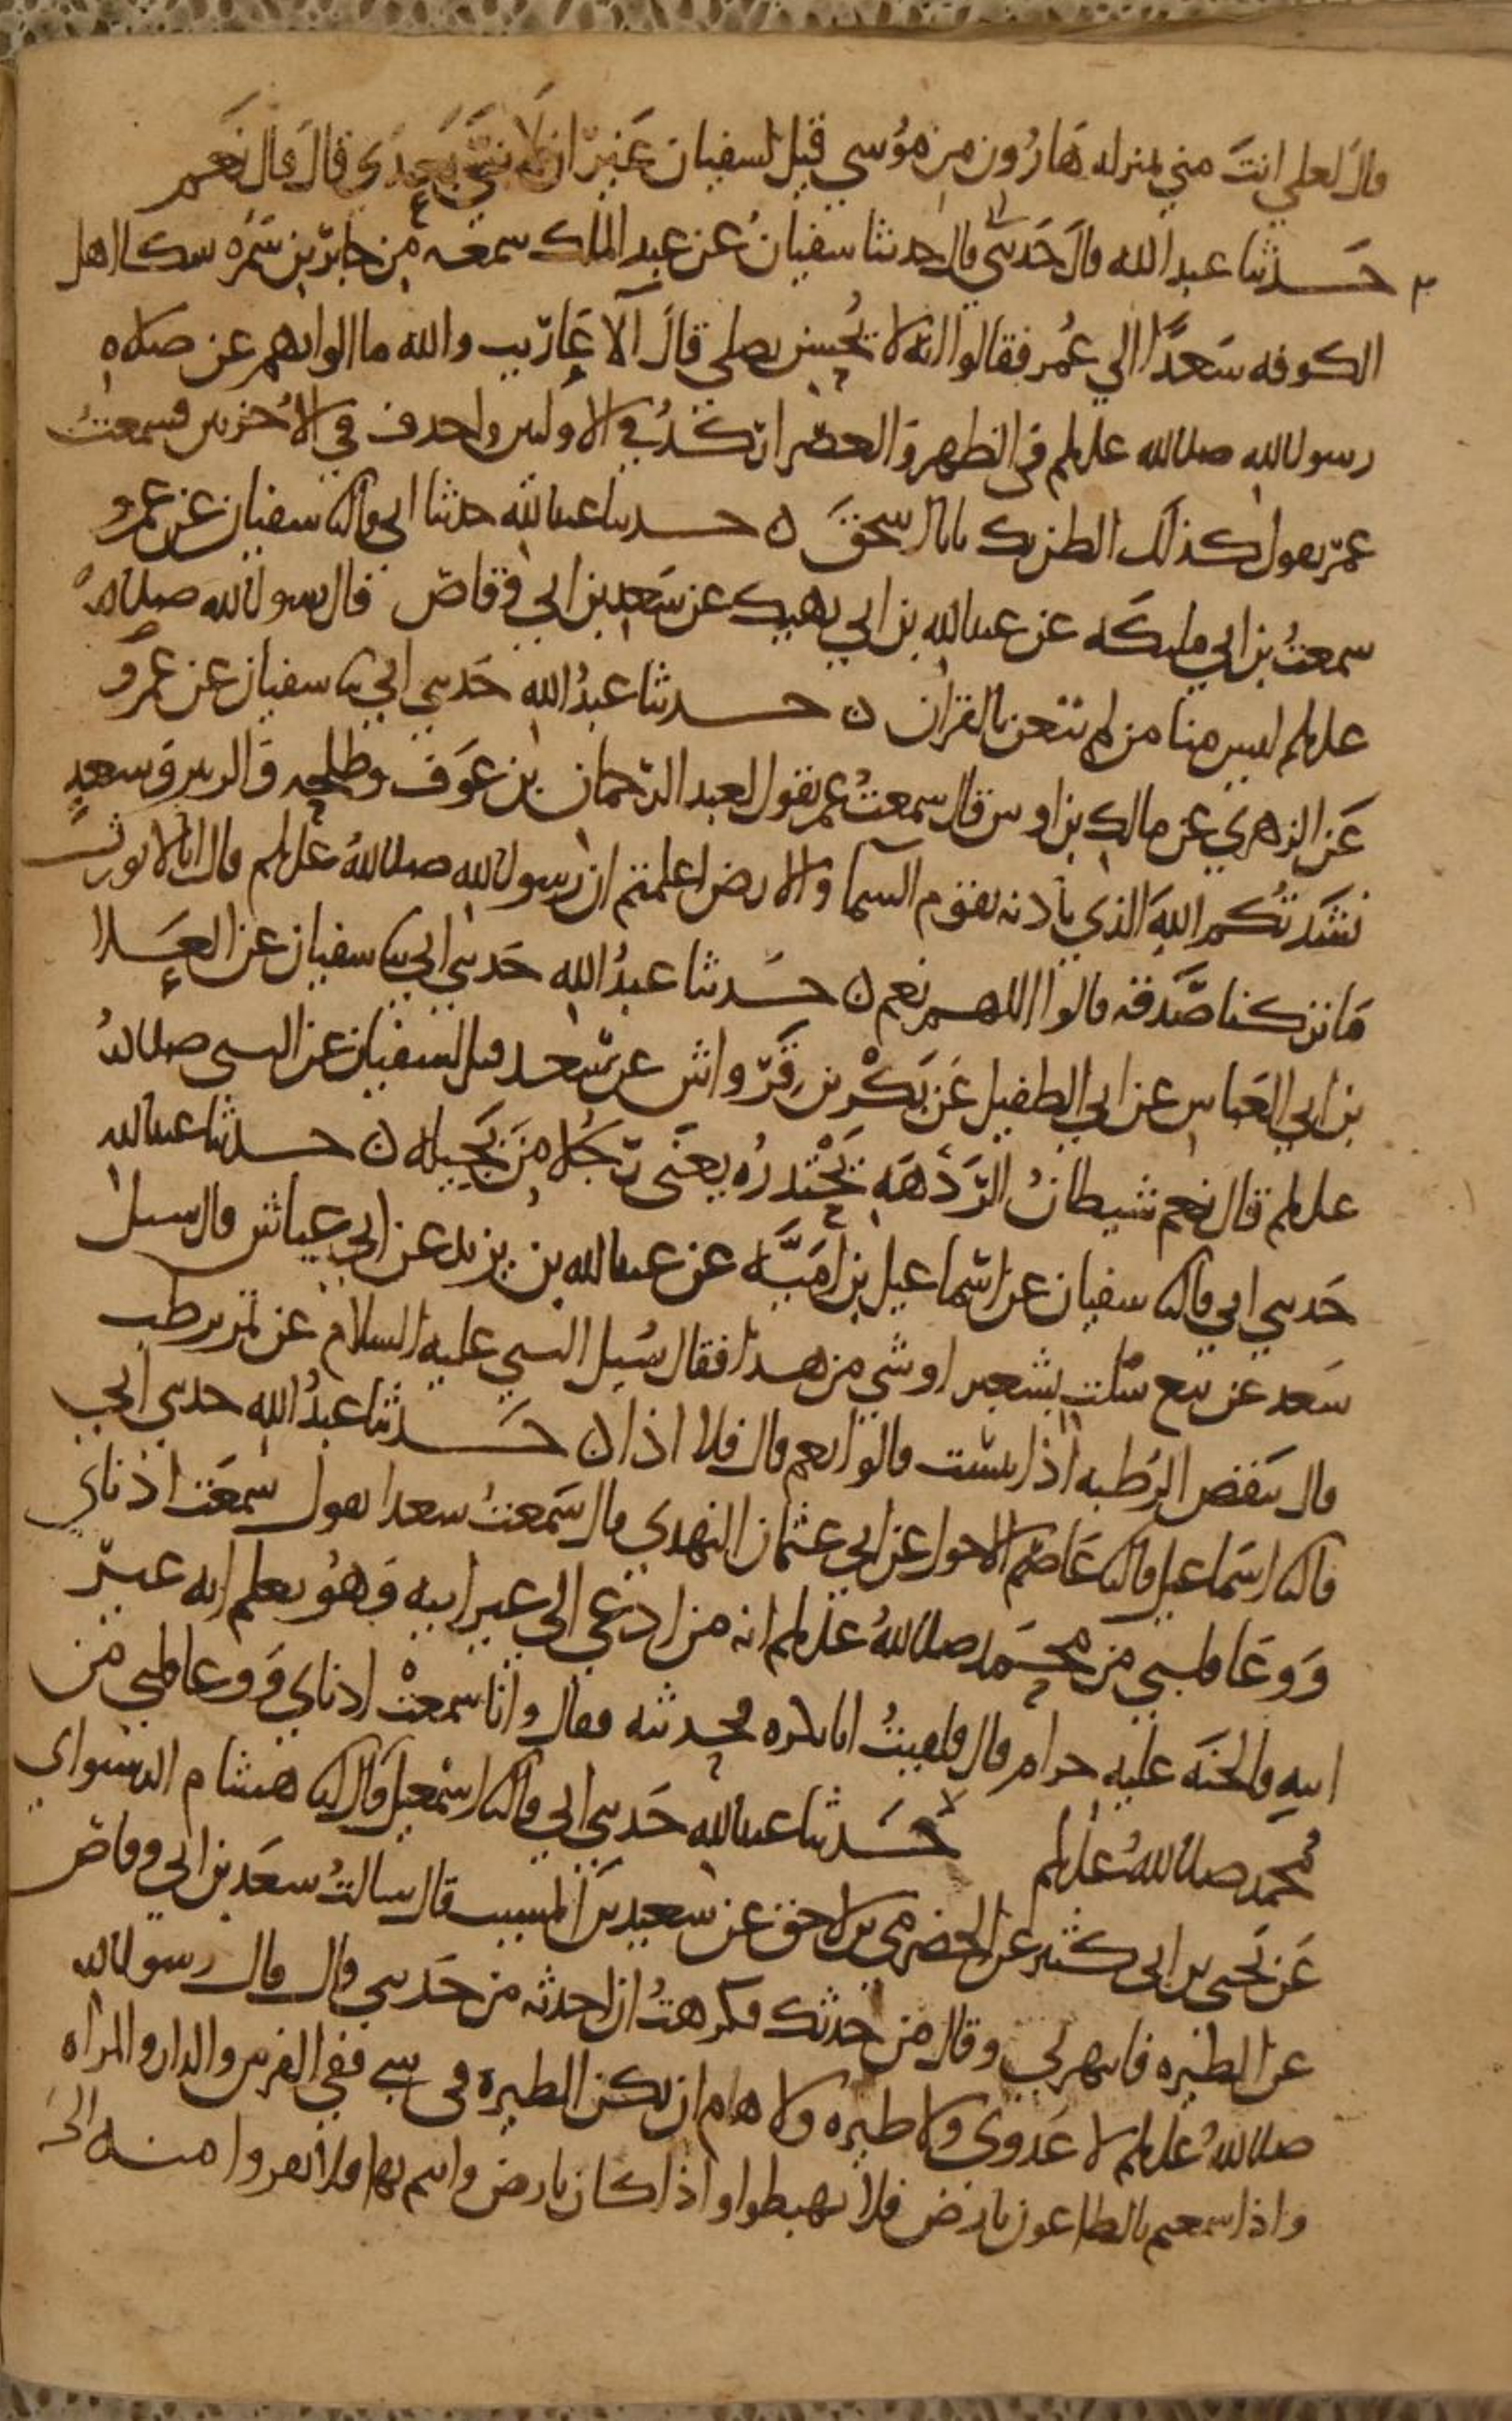 قال لعلي انت مني بمنزله هارون من موسي قيل لسفيان غير انه لا نبي بعدي قال قال نعم
حدثنا عبد الله قال حدثني قال حدثنا سفيان عن عبد الملك سمعه من جابر بن سمره سكا اهل
الكوفه سعدا الي عمر فقالوا انه لا يحسن يصلي قال آلاعاريب والله ما الوا بهم عن صلاه
رسول الله صلى الله عليه وسلم في الظهر والعصر اركد في الاوليين واحذف في الاخريين فسمعت
عمر يقول كذلك الظن بك يابا اسحق ن حدثنا عبد الله حدثنا ابي قال ثنا سفيان عن عمرو
سمعت بن ابي مليكه عن عبد الله بن ابي نهيك عن سعد بن ابي وقاص قال رسول الله صلى الله
عليه وسلم ليس منا من لم يتغن بالقران ن حدثنا عبد الله حدثني ابي ثنا سفيان عن عمرو
عن الزهري عن مالك بن اوس قال سمعت عمر يقول لعبد الرحمان بن عوف وطلحه والزبير وسعد
نشدتكم الله الذي باذنه تقوم السما والارض اعلمتم ان رسول الله صلى الله عليه وسلم قال انا لا نورث
ما تركنا صدقه قالوا اللهم نعم ن حدثنا عبد الله حدثني ابي ثنا سفيان عن العلا
بن ابي العباس عن ابي الطفيل عن بكر بن قرواش عن سعد قيل لسفيان عن النبي صلى الله
عليه وسلم قال نعم شيطان الردهه يحتدره يعني رجلا من بجيله ن حدثنا عبد الله
حدثني ابي قال ثنا سفيان عن اسماعيل بن اميه عن عبد الله بن يزيد عن ابي عياش قال سيل
سعد عن بيع سلت بشعير او شي من هذا فقال سيل النبي عليه السلام عن تمر برطب
قال تنقص الرطبه اذا يبست قالوا نعم قال فلا اذا ن حدثنا عبد الله حدثني ابي
قال ثنا اسماعيل قال ثنا عاصم الاحول عن ابي عثمان النهدي قال سمعت سعدا يقول سمعت اذناي
ووعا قلبي من محمد صلى الله عليه وسلم انه من ادعي الي غير ابيه وهو يعلم انه غير
ابيه فالجنه عليه حرام قال فلقيت ابا بكره فحدثته فقال وانا سمعت اذناي ووعا قلبي من
محمد صلى الله عليه وسلم حدثنا عبد الله حدثني ابي قال ثنا اسمعيل قال ثنا هشام الدستواي
عن يحيي بن ابي كثير عن الحضرمي بن لاحق عن سعيد بن المسيب قال سالت سعد بن ابي وقاص
عن الطيره فانتهرني وقال من حدثك فكرهت ان احدثه من حدثني قال قال رسول الله
صلى الله عليه وسلم لا عدوي ولا طيره ولا هام ان يكن الطيره في شي ففي الفرس والدار والمراه
واذا سمعتم بالطاعون بارض فلا تهبطوا واذا كان بارض وانتم بها فلا تفروا منه